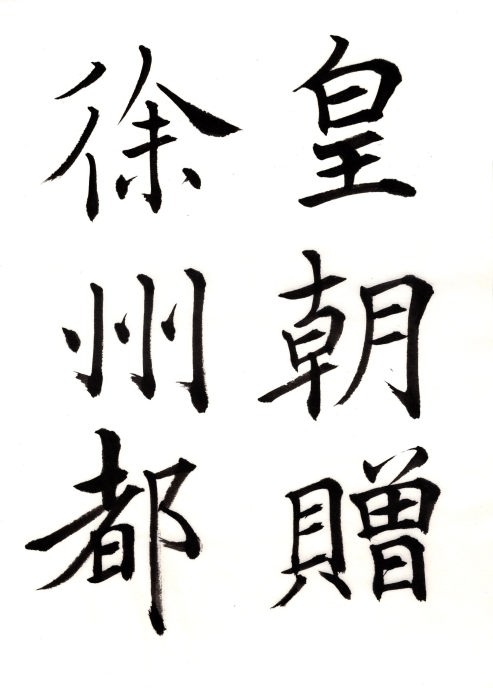 皇朝贈
徐州都